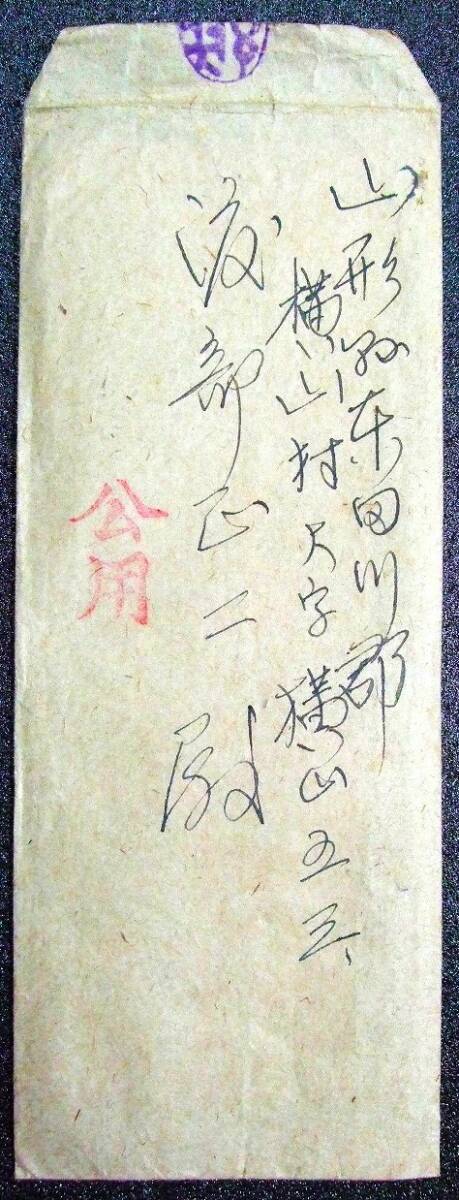 山形縣東田川郡
横山村大字横山五三、
渡部正二殿
公用